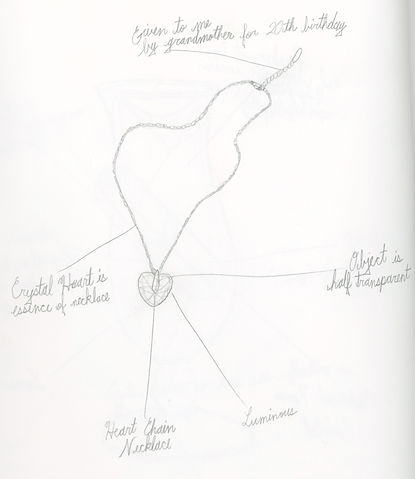 Given to me
by grandmother for 20th birthday
Crystal Heart is
essence of necklace
Object is
half transparent
Heart Chain
Necklace
Luminous